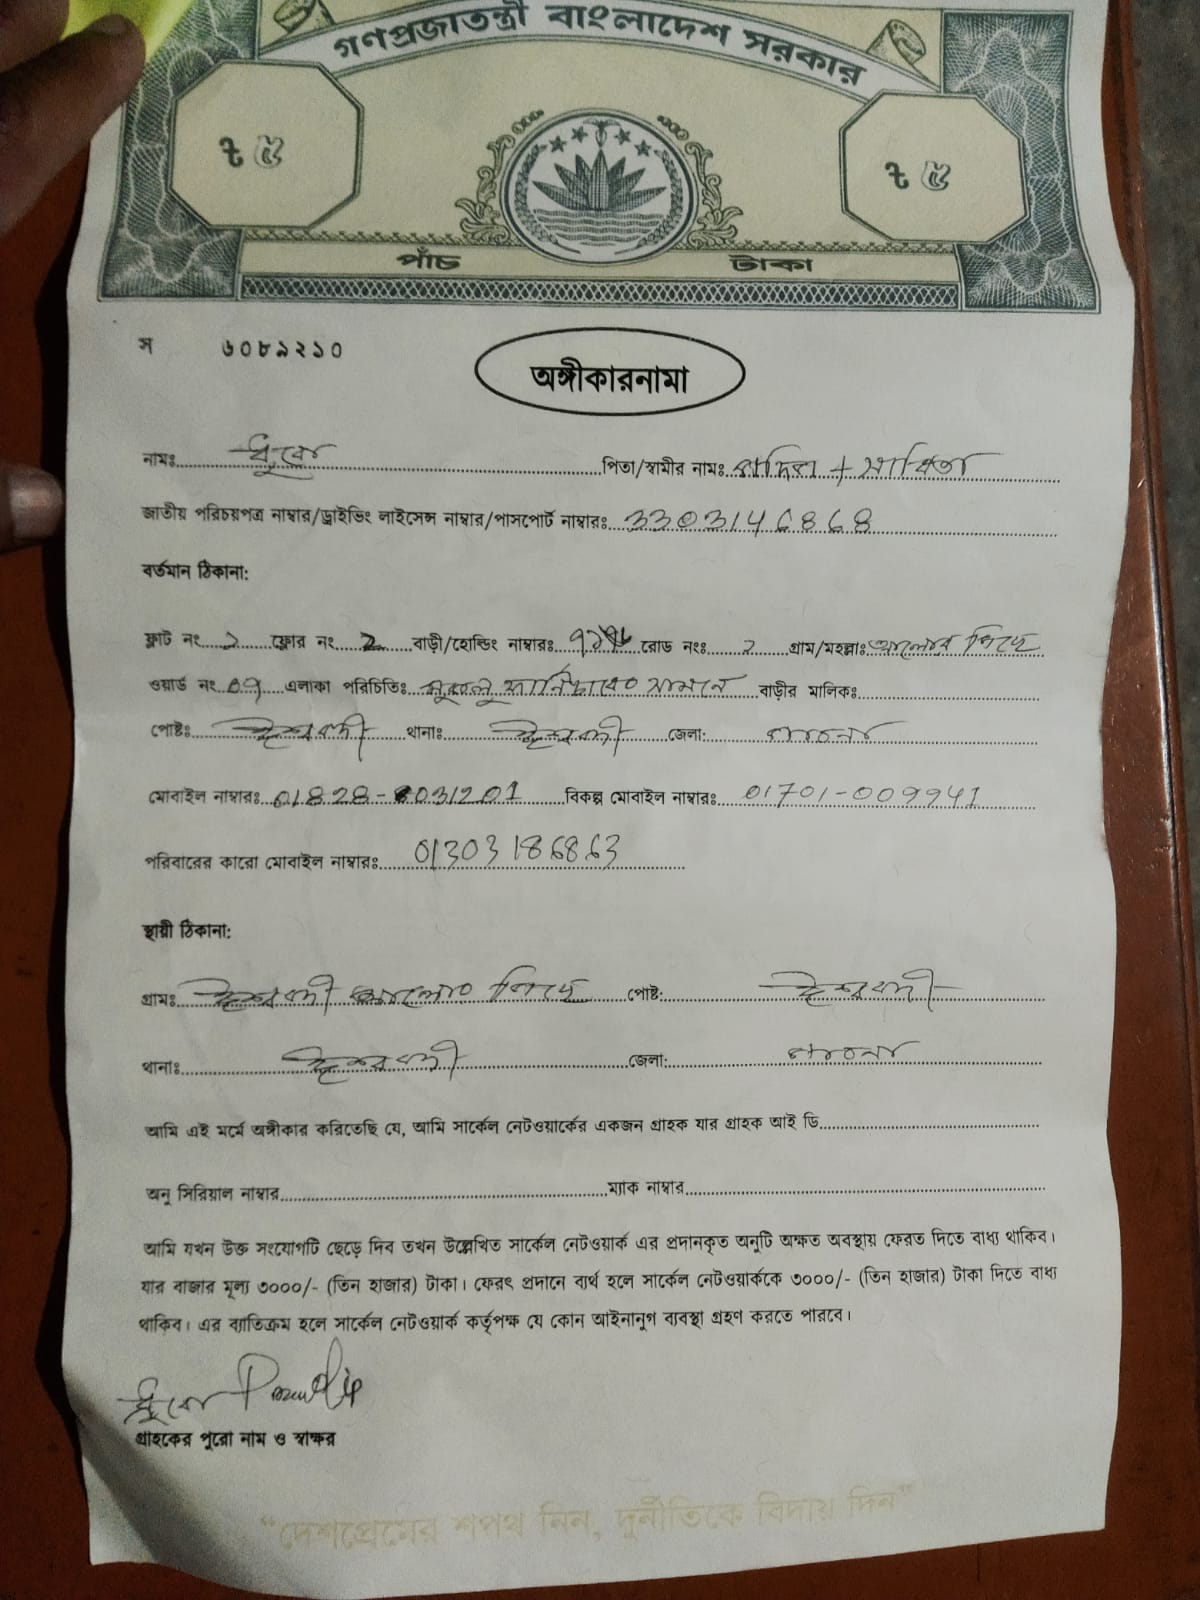 গণপ্রজাতন্ত্রী বাংলাদেশ সরকার
৳ ৫ ৳ ৫
পাঁচ টাকা
স ৬০৮৯২১০
অঙ্গীকারনামা
নামঃ পিতা/স্বামীর নামঃ
জাতীয় পরিচয়পত্র নাম্বার/ড্রাইভিং লাইসেন্স নাম্বার/পাসপোর্ট নাম্বারঃ 3303146868
বর্তমান ঠিকানা:
ফ্লাট নং ২ ফ্লোর নং 2 বাড়ী/হোল্ডিং নাম্বারঃ রোড নংঃ ২ গ্রাম/মহল্লাঃ
ওয়ার্ড নং 09 এলাকা পরিচিতিঃ সামনে বাড়ীর মালিকঃ
পোষ্টঃ ঈশ্বরদী থানাঃ ঈশ্বরদী জেলা: পাবনা
মোবাইল নাম্বারঃ 01828-8031201 বিকল্প মোবাইল নাম্বারঃ 01701-009941
পরিবারের কারো মোবাইল নাম্বারঃ 01303186863
স্থায়ী ঠিকানা:
গ্রামঃ ঈশ্বরদী পোষ্ট: ঈশ্বরদী
থানাঃ ঈশ্বরদী জেলা: পাবনা
আমি এই মর্মে অঙ্গীকার করিতেছি যে, আমি সার্কেল নেটওয়ার্কের একজন গ্রাহক যার গ্রাহক আই ডি
অনু সিরিয়াল নাম্বার ম্যাক নাম্বার
আমি যখন উক্ত সংযোগটি ছেড়ে দিব তখন উল্লেখিত সার্কেল নেটওয়ার্ক এর প্রদানকৃত অনুটি অক্ষত অবস্থায় ফেরত দিতে বাধ্য থাকিব।
যার বাজার মূল্য ৩০০০/- (তিন হাজার) টাকা। ফেরৎ প্রদানে ব্যর্থ হলে সার্কেল নেটওয়ার্ককে ৩০০০/- (তিন হাজার) টাকা দিতে বাধ্য
থাকিব। এর ব্যাতিক্রম হলে সার্কেল নেটওয়ার্ক কর্তৃপক্ষ যে কোন আইনানুগ ব্যবস্থা গ্রহণ করতে পারবে।
গ্রাহকের পুরো নাম ও স্বাক্ষর
“দেশপ্রেমের শপথ নিন, দুর্নীতিকে বিদায় দিন”